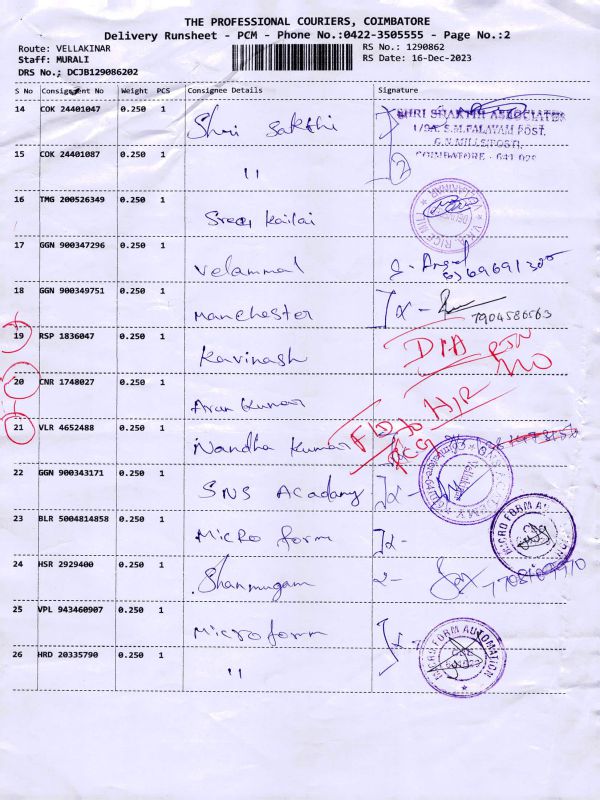 THE PROFESSIONAL COURIERS, COIMBATORE
Delivery Runsheet - PCM - Phone No.:0422-3505555 - Page No.:2
Route: VELLAKINAR RS No.: 1290862
Staff: MURALI RS Date: 16-Dec-2023
DRS No.; DCJB129086202
S No Consignment No Weight PCS Consignee Details Signature
14 COK 24401047 0.250 1 Shri Sakthi
SHRI SHAKTHI ASSOCIATES
1/9A, S.M.PALAYAM POST,
G.N.MILLS(POST),
COIMBATORE - 641 029
15 COK 24401087 0.250 1 "
16 TMG 200526349 0.250 1 Sree Kailai
17 GGN 900347296 0.250 1 Velammal
18 GGN 900349751 0.250 1 Manchester 7904586563
19 RSP 1836047 0.250 1 Kavinash
20 CNR 1748027 0.250 1 Arun Kumar
21 VLR 4652488 0.250 1 Nandha Kumar
22 GGN 900343171 0.250 1 SNS Acadamy
23 BLR 5004814858 0.250 1 Micro form
MICRO FORM AUTOMATION
24 HSR 2929400 0.250 1 Shanmugam
25 VPL 943460907 0.250 1 Microform
MICRO FORM AUTOMATION
26 HRD 20335790 0.250 1 "